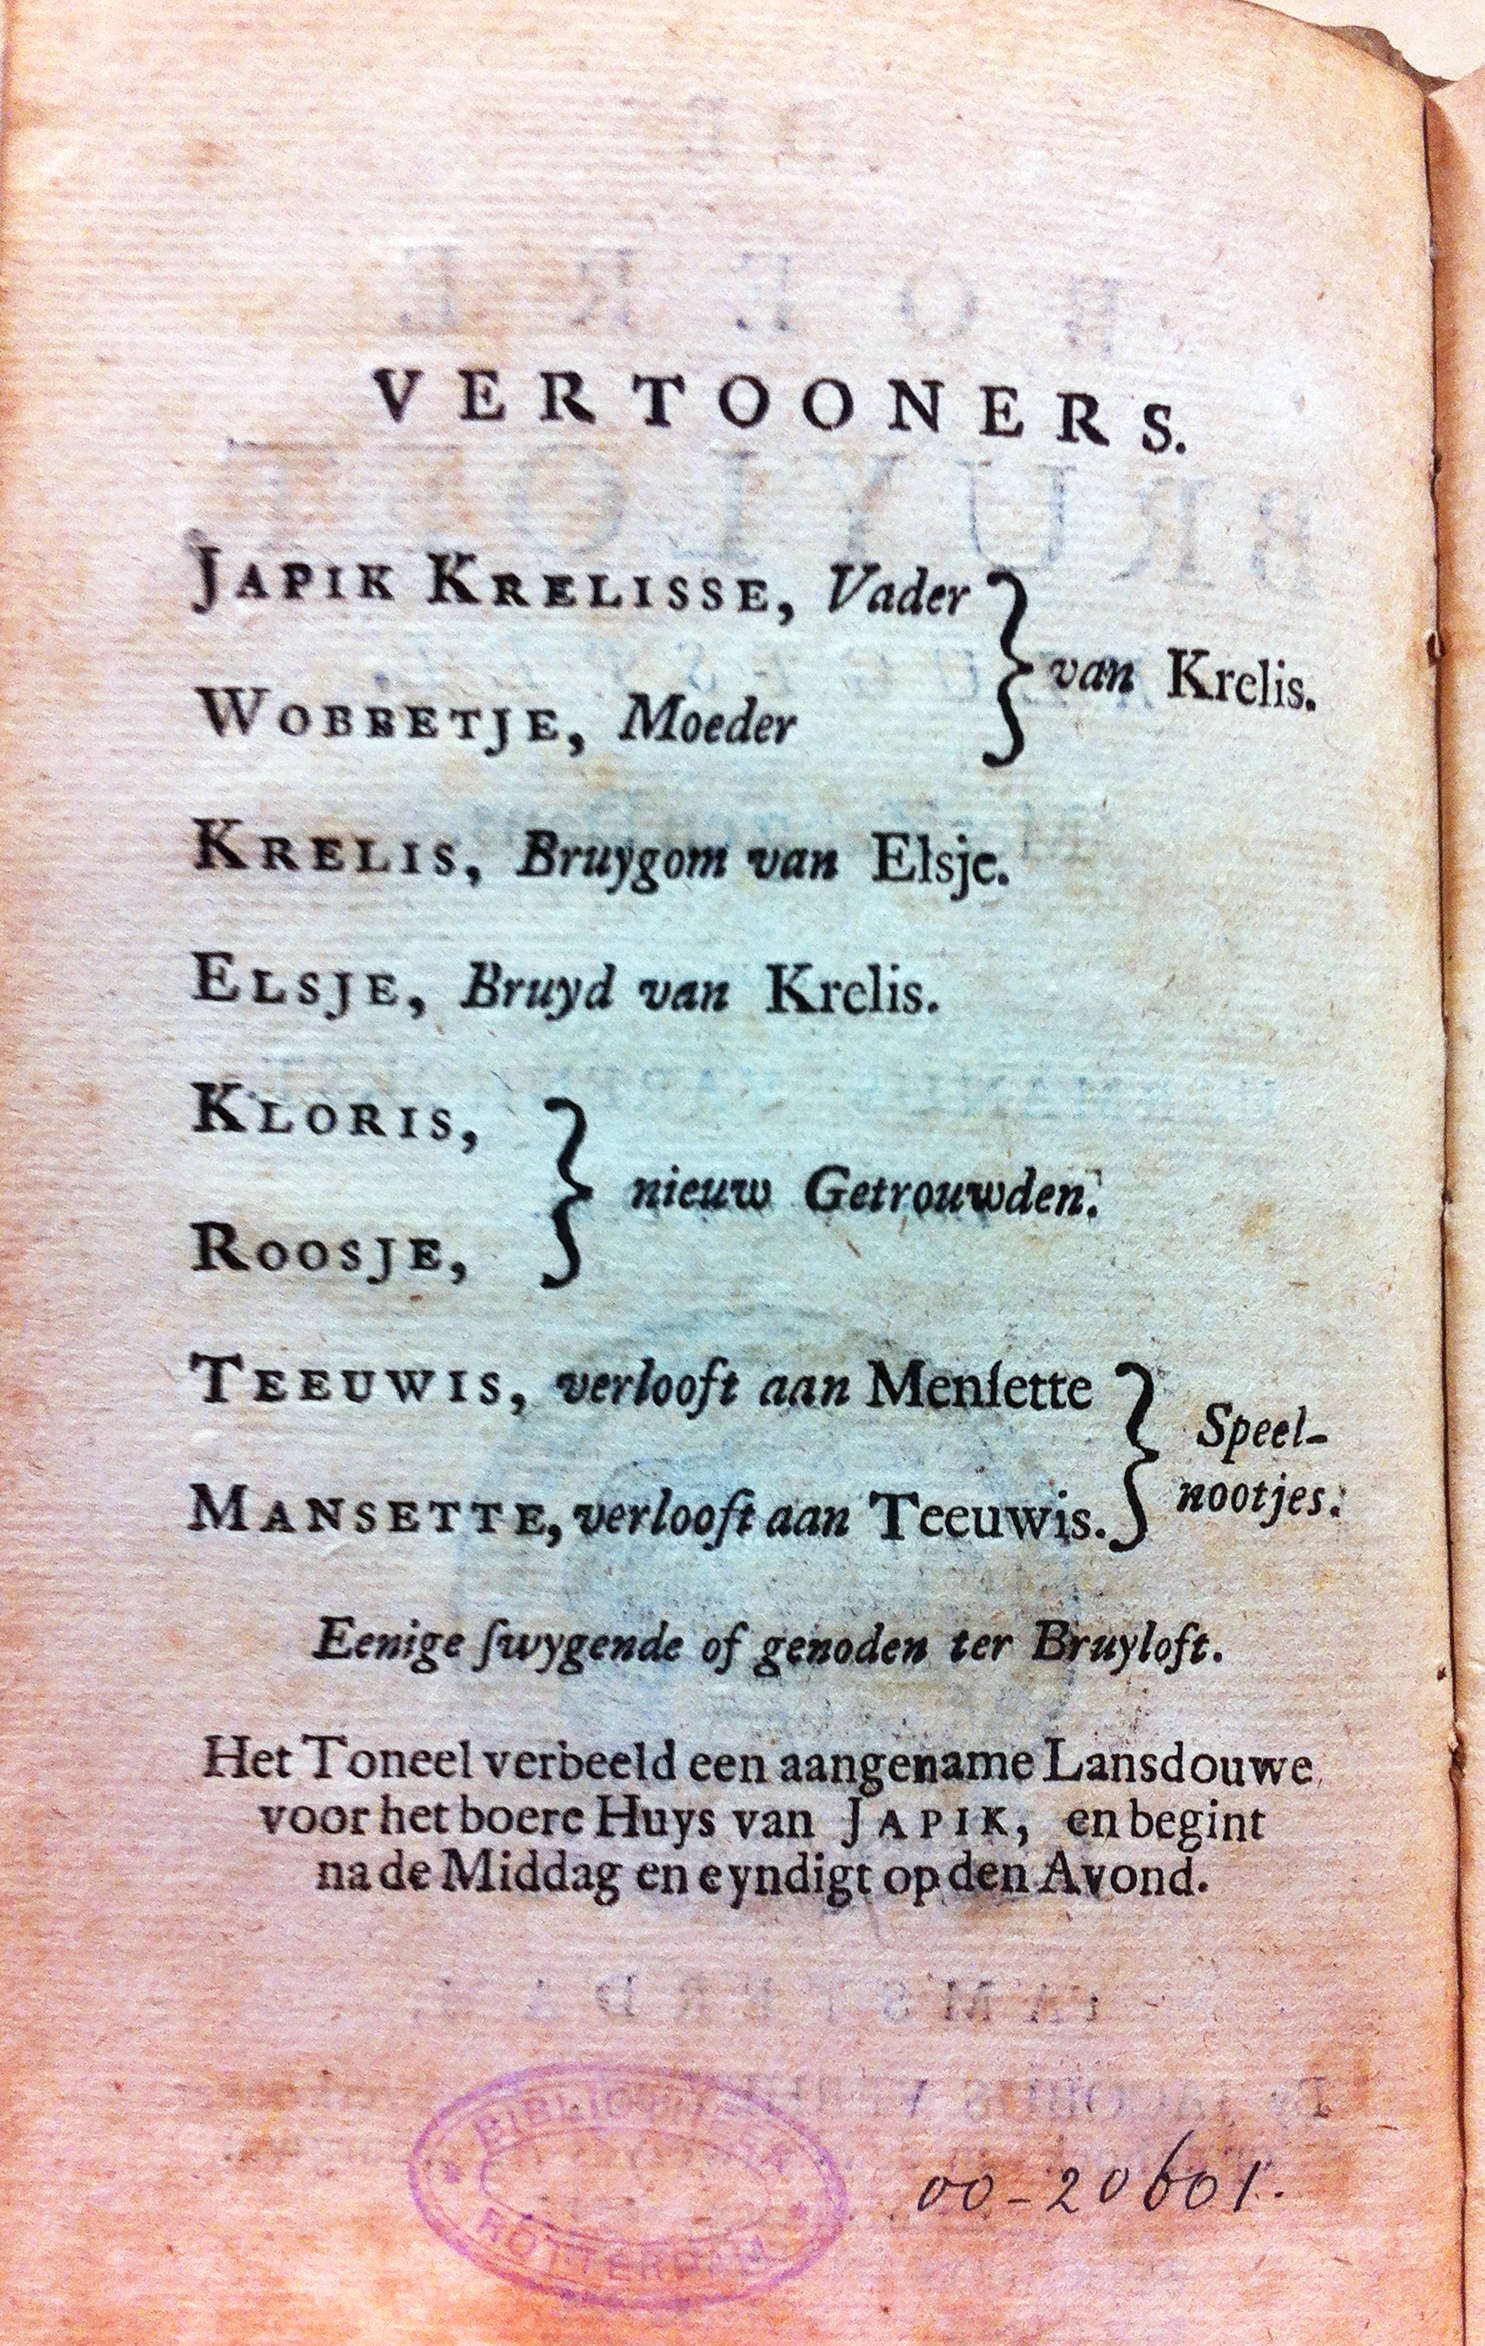 VERTOONERS.
JAPIK KRELISSE, Vader
WOBBETJE, Moeder
} van Krelis.
KRELIS, Bruygom van Elsje.
ELSJE, Bruyd van Krelis.
KLORIS,
ROOSJE,
} nieuw Getrouwden.
TEEUWIS, verlooft aan Menſette
MANSETTE, verlooft aan Teeuwis.
} Speel-
nootjes.
Eenige ſwygende of genoden ter Bruyloft.
Het Toneel verbeeld een aangename Lansdouwe
voor het boere Huys van JAPIK, en begint
na de Middag en eyndigt op den Avond.
BIBLIOTHEEK
ROTTERDAM
00-20601.